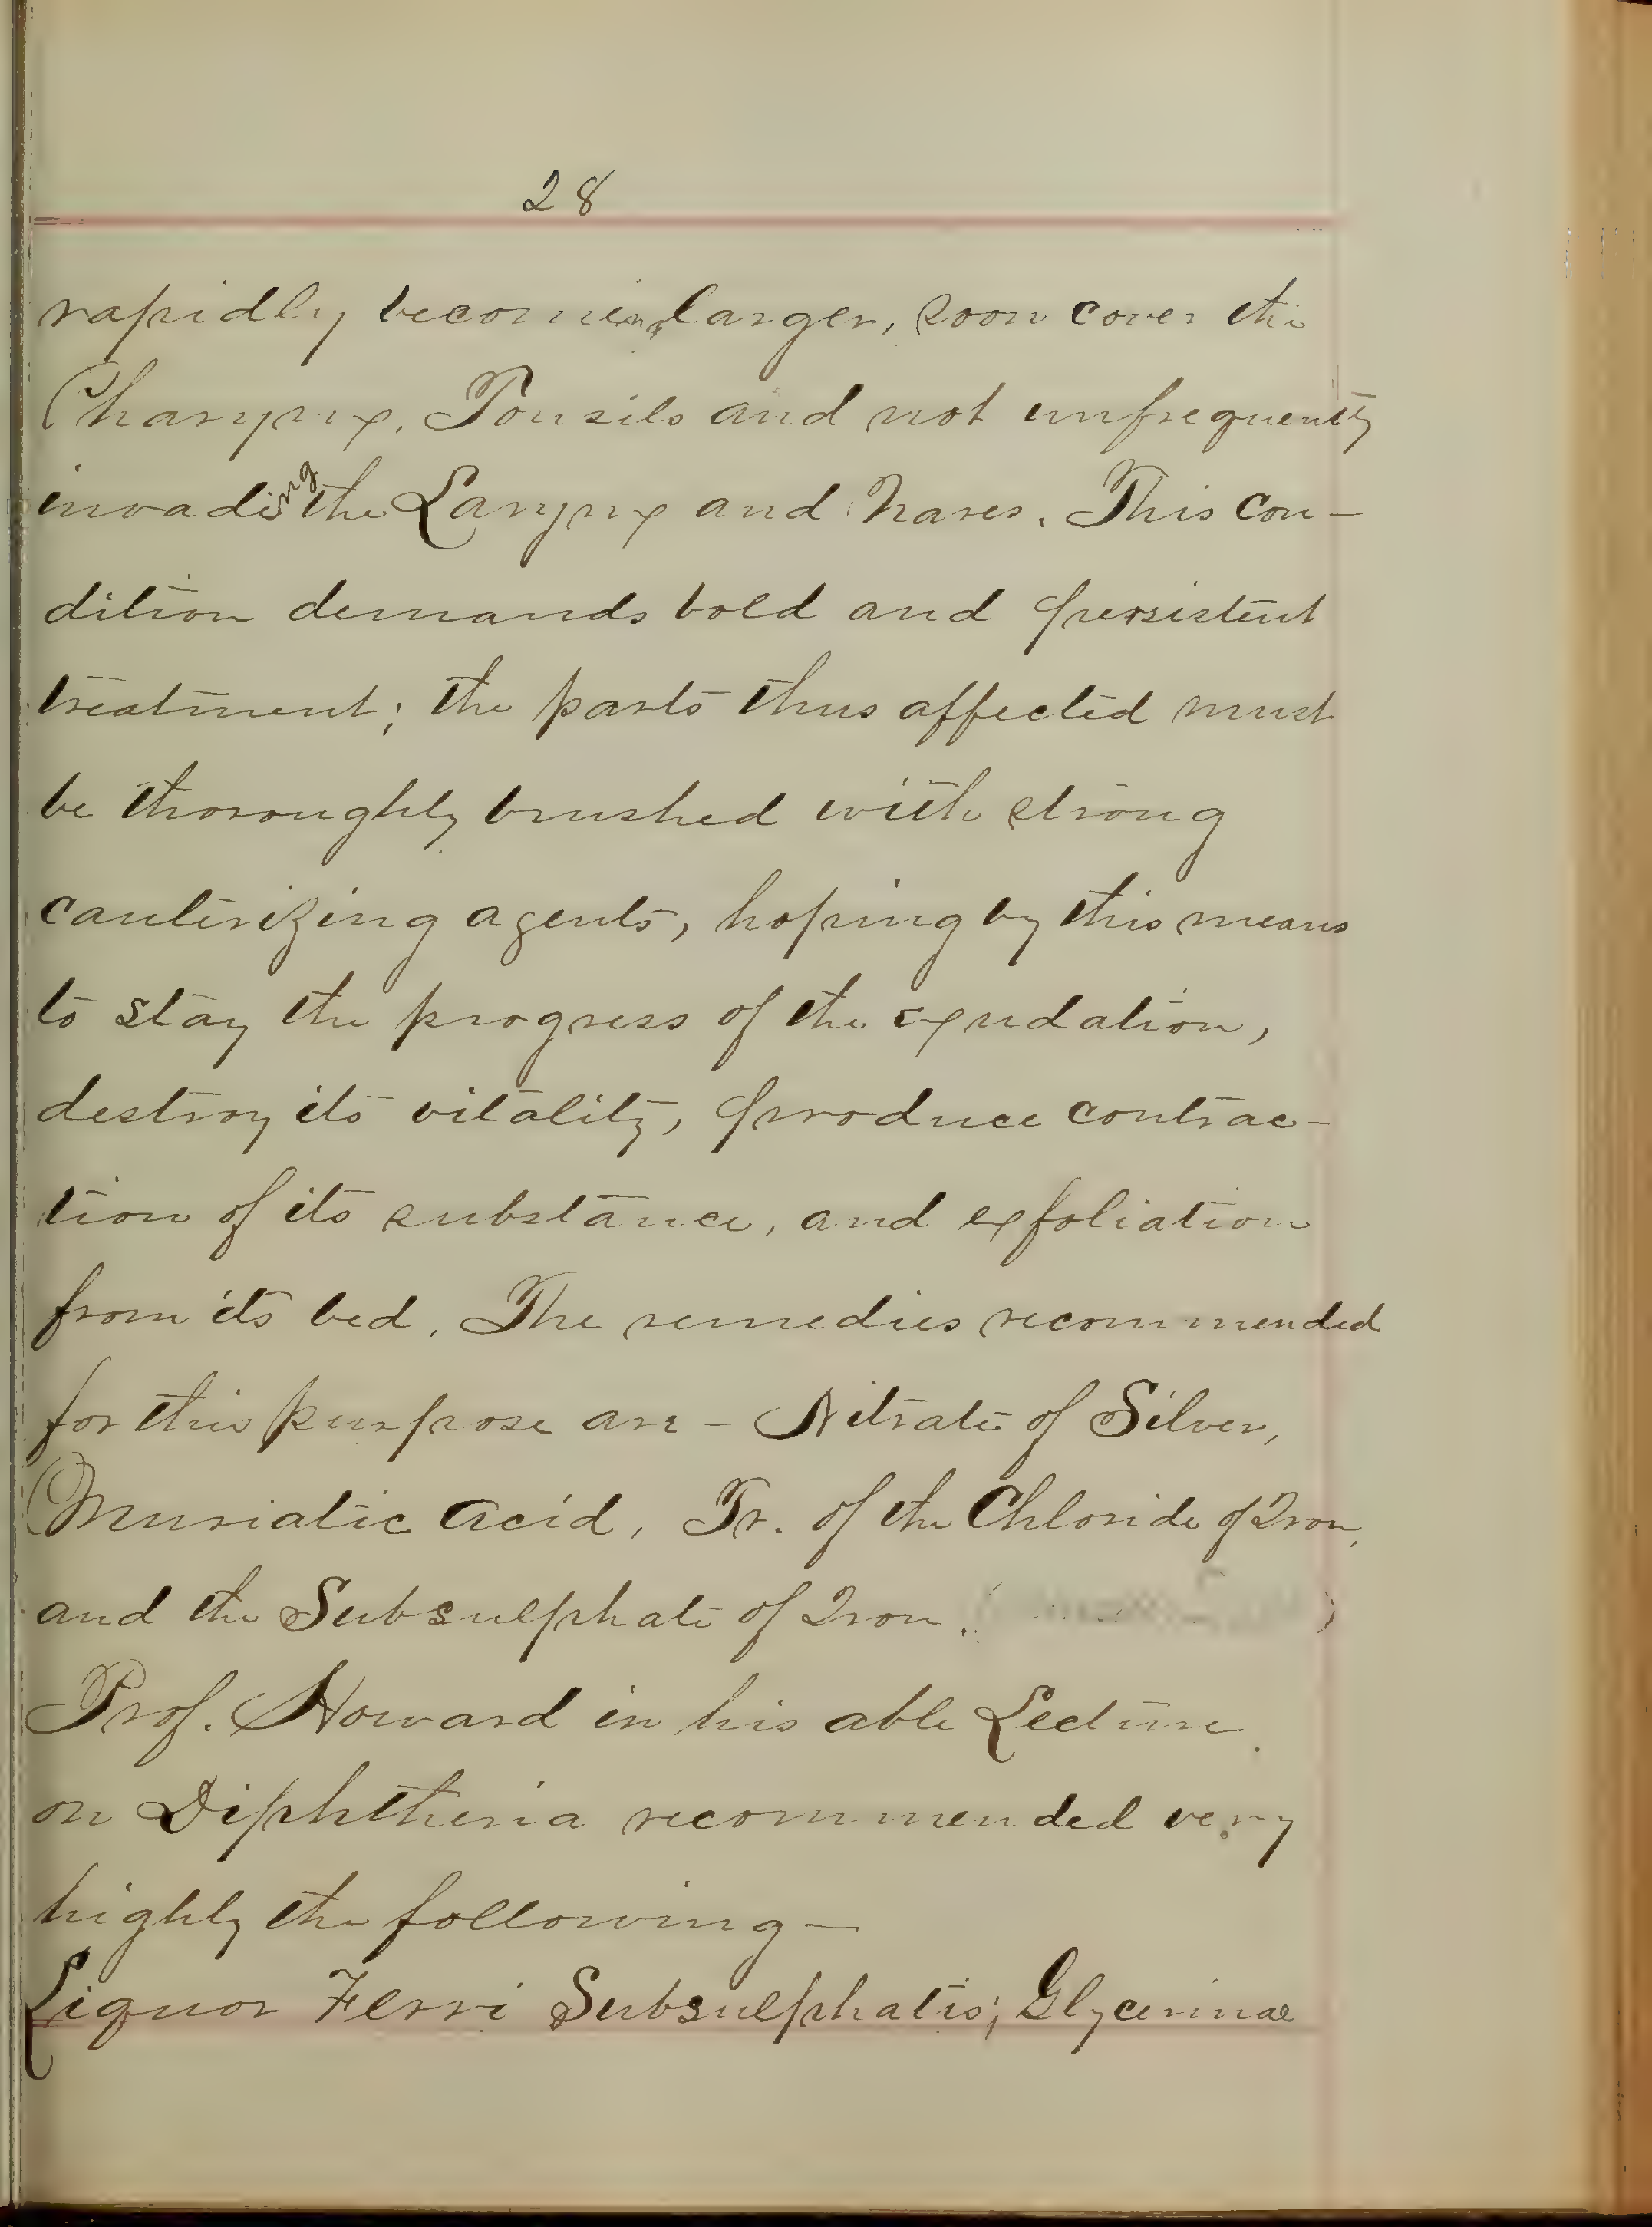 28
rapidly becoming larger, soon cover the
Pharynx, Tonsils and not unfrequently
invading the Larynx and Nares. This con-
dition demands bold and persistent
treatment; the parts thus affected must
be thoroughly brushed with strong
cauterizing agents, hoping by this means
to stay the progress of the exudation,
destroy its vitality, produce contrac-
tion of its substance, and exfoliation
from its bed. The remedies recommended
for this purpose are - Nitrate of Silver,
Muriatic Acid, Tr. of the Chloride of Iron,
and the Subsulphate of Iron.
Prof. Howard in his able Lecture
on Diphtheria recommended very
highly the following -
Liquor Ferri Subsulphatis; Glycerinae